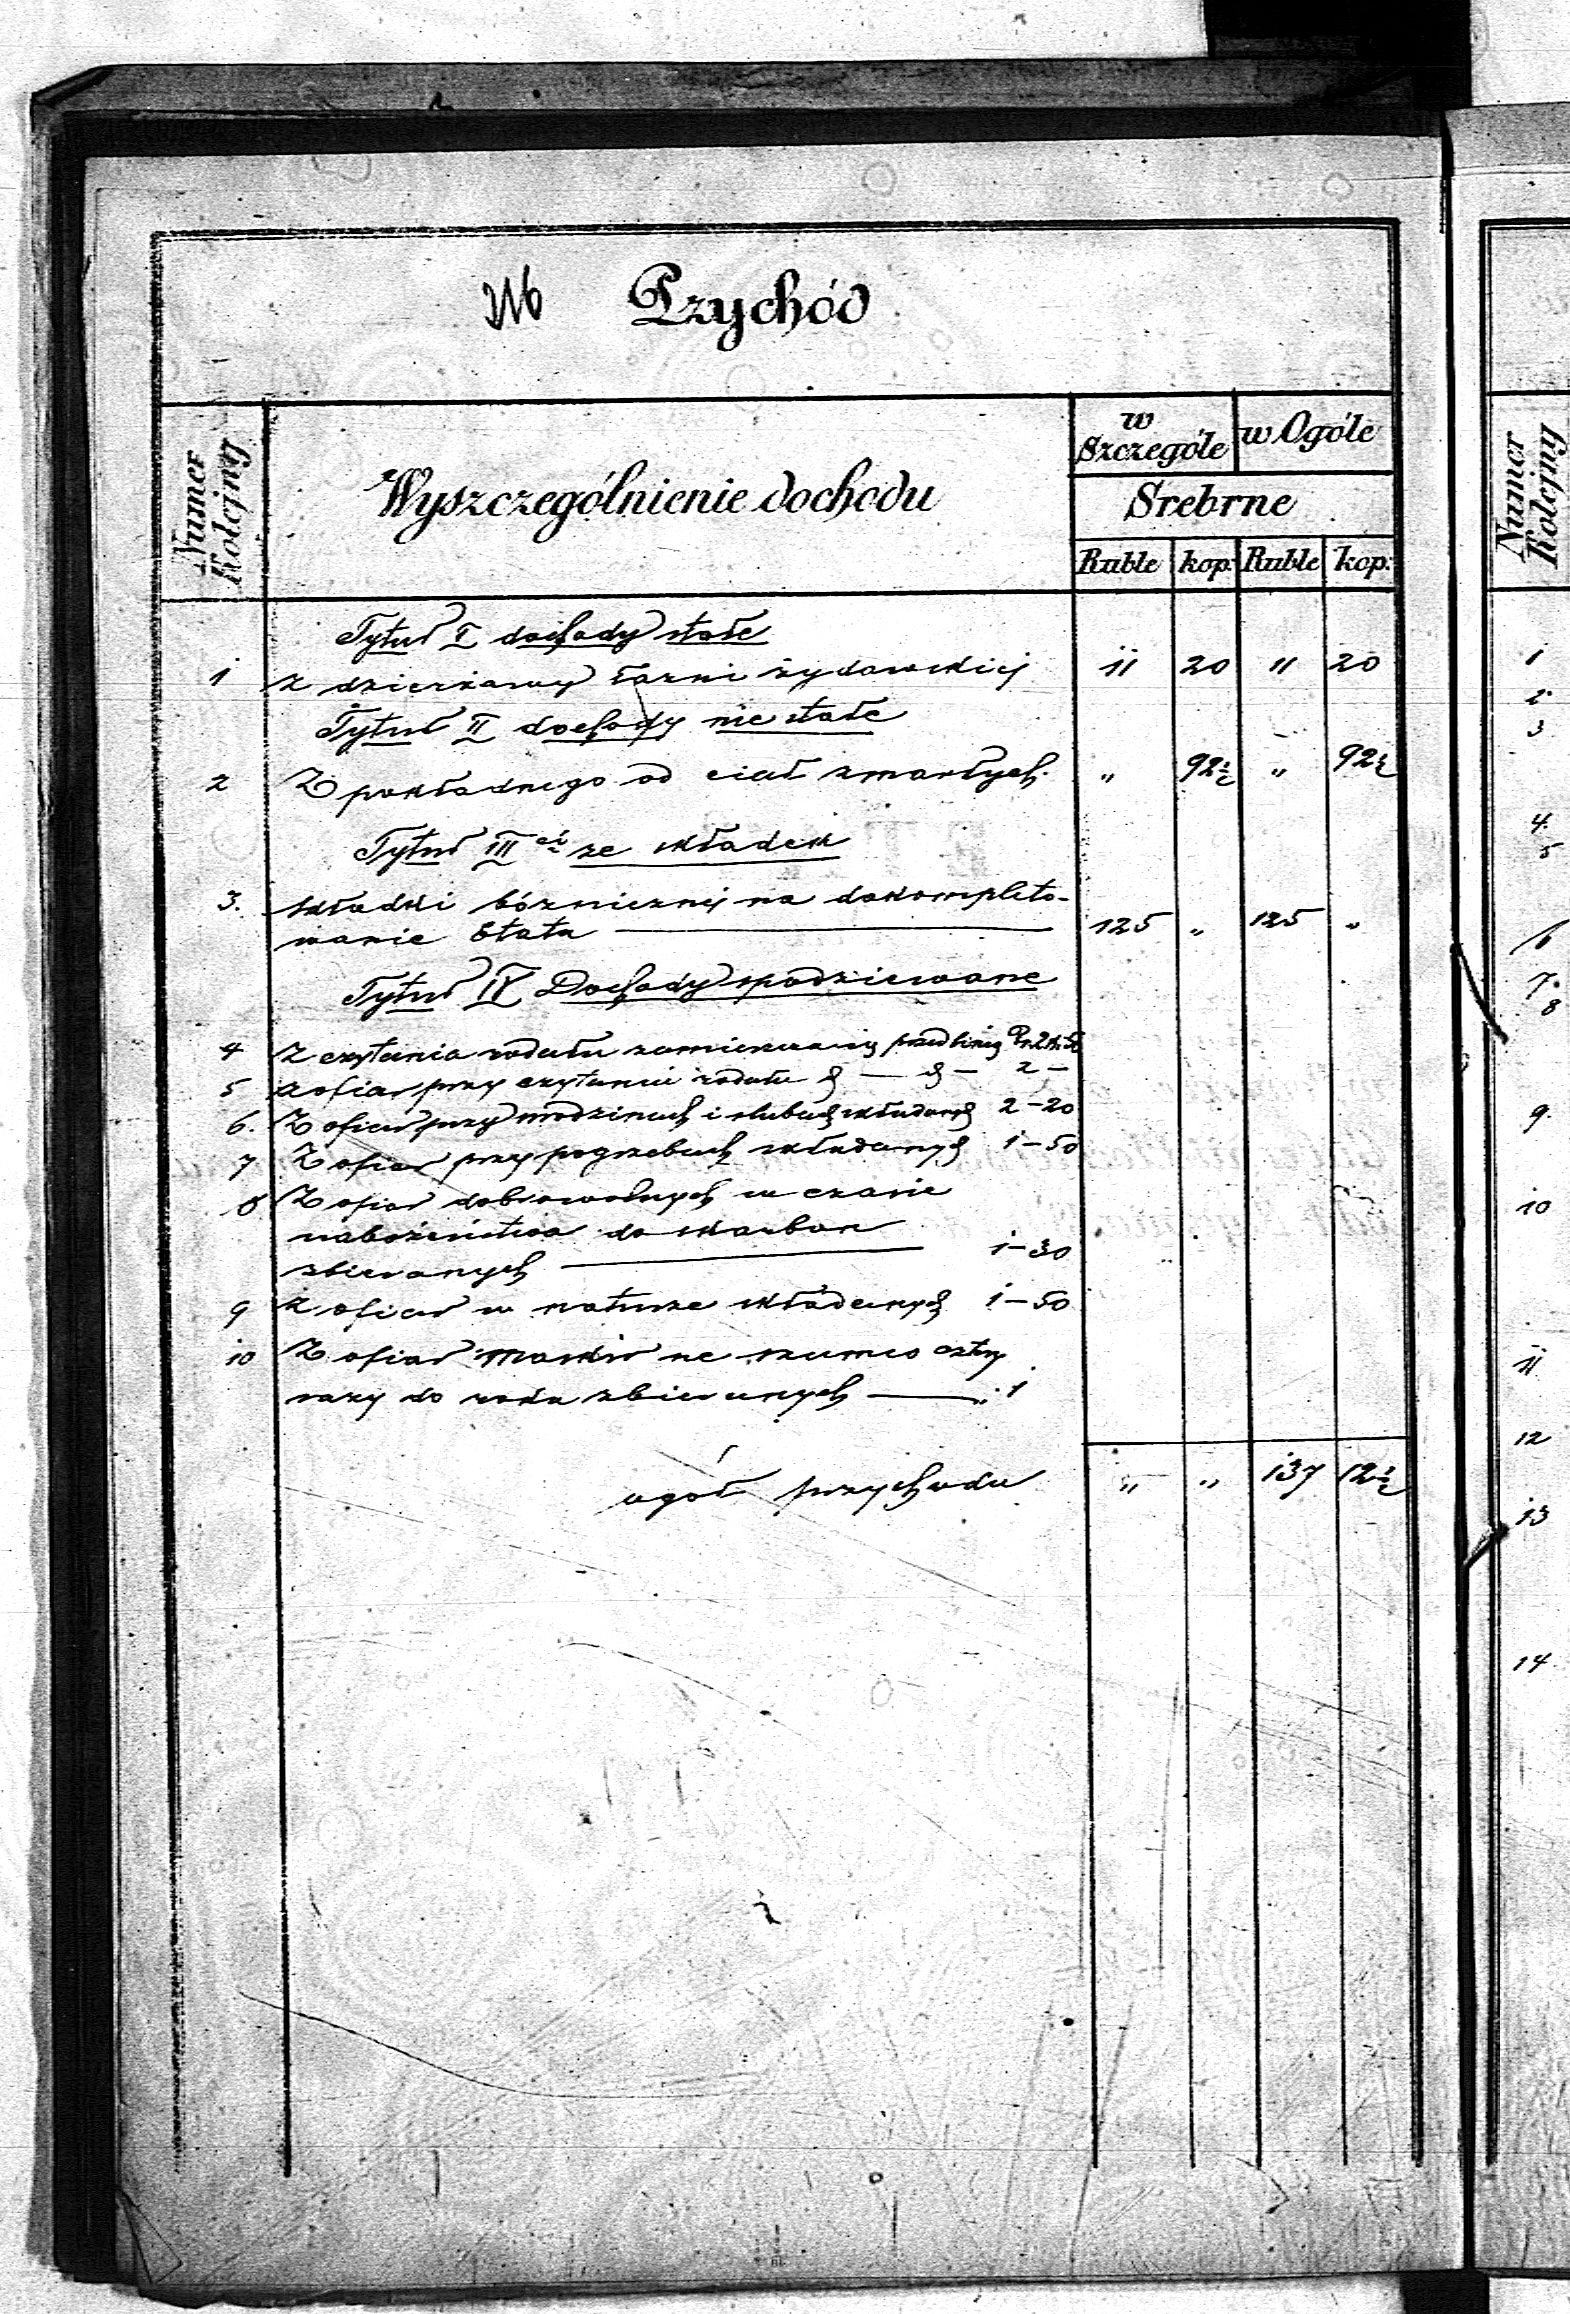 216 Przychód
Numer Kolejny
Wyszczególnienie dochodu
w Szczególe
w Ogóle
Srebrne
Ruble kop: Ruble kop:
Tytuł I dochody stałe
1 z dzierżawy łazni żydowskiej 11 20 11 20
Tytuł II dochody nie stałe
2 Z pokładnego od ciał zmarłych. " 92½ " 92½
Tytuł III ci ze składek
3. składki bóżnicznej na dokompleto-
wanie Etatu 125 " 125 "
Tytuł IV Dochody spodziewane
4 Z czytania rodału
5 z ofiar przy czytaniu rodału 2 -
6. Z ofiar przy urodzinach i slubach składanych 2-20
7 Z ofiar przy pogrzebach składanych 1-50
8 Z ofiar dobrowolnych w czasie
nabożeństwa do skarbon
zbieranych 1-30
9 z ofiar w naturze składanych 1-50
10 Z ofiar cztery
razy do roku zbieranych 1
ogół przychodu " " 137 12½
Numer Kolejny
1
2
3
4.
5
6
7.
8
9.
10
11
12
13
14